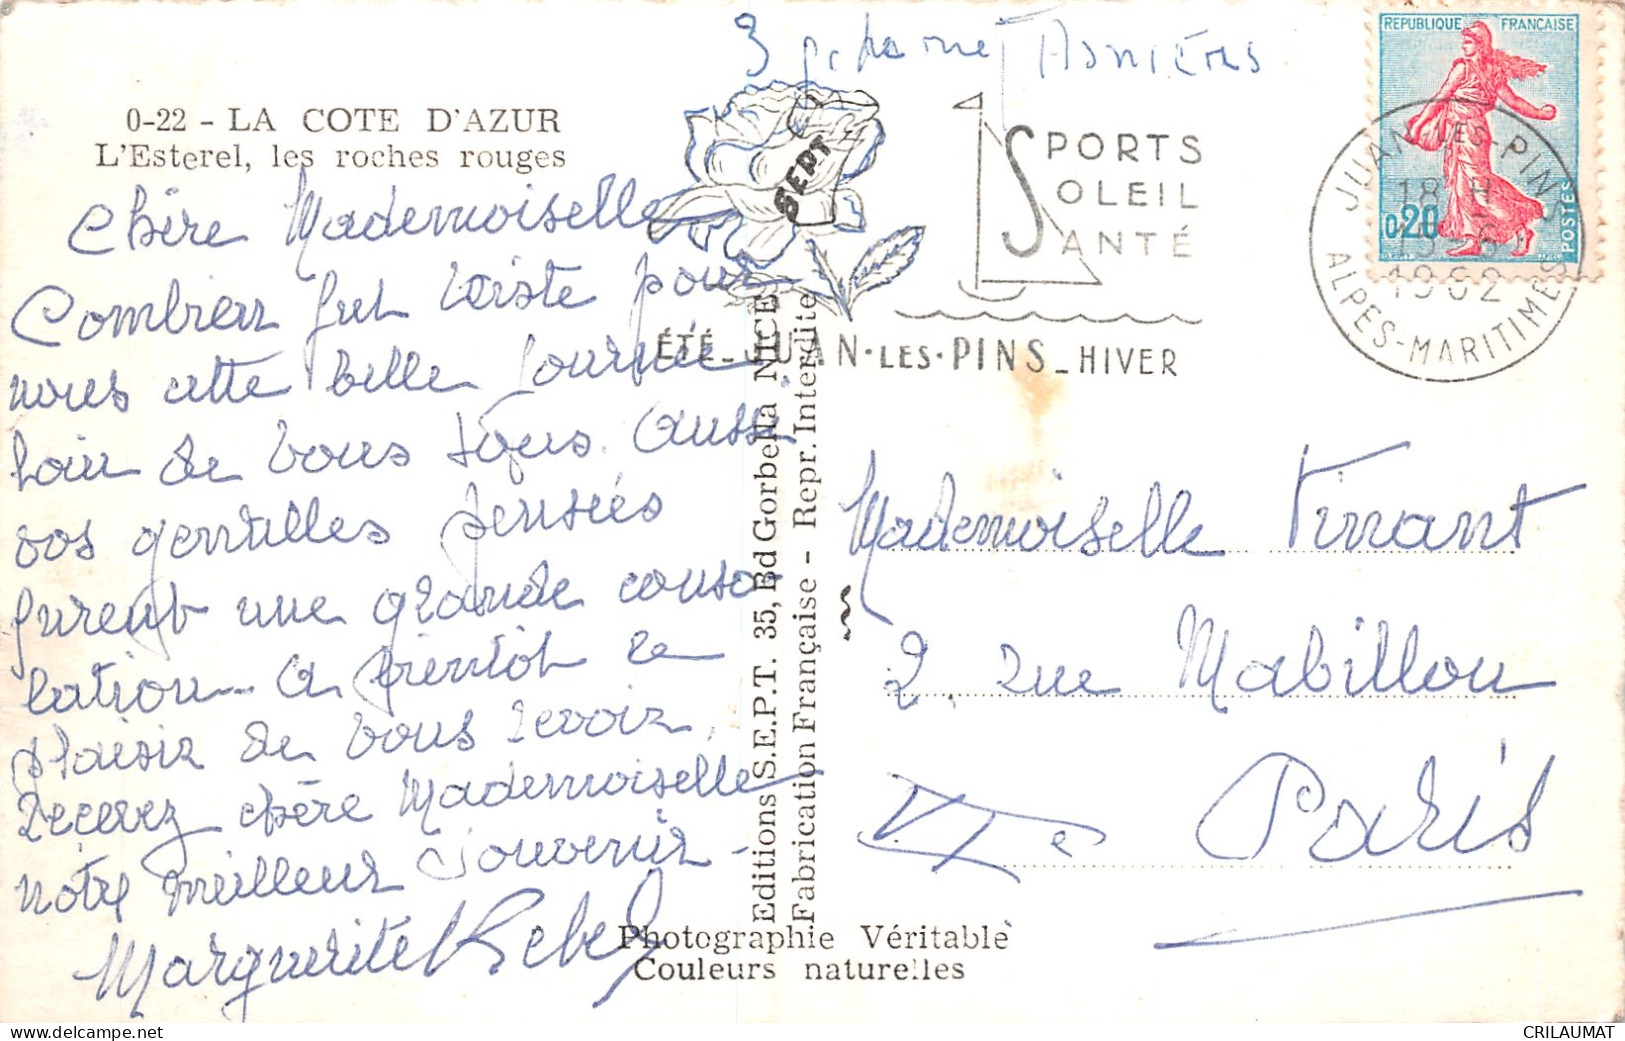 Asnières
0-22 - LA COTE D'AZUR
L'Esterel, les roches rouges
SEPT
SPORTS
SOLEIL
SANTÉ
ÉTÉ_JUAN·LES·PINS_HIVER
REPUBLIQUE FRANÇAISE
0,20
POSTES
JUAN-LES-PINS
18 H
1962
ALPES-MARITIMES
Chère Mademoiselle
Combien fut triste pour
nous cette belle journée
loin de vous tous. Aussi
vos gentilles pensées
furent une grande conso-
lation... A bientôt le
plaisir de vous revoir,
Recevez chère Mademoiselle
notre meilleur souvenir -
Marguerite
Editions S.E.P.T. 35, Bd Gorbella NICE
Fabrication Française - Repr. Interdite
Mademoiselle
2 rue Mabillon
Paris
VIe
Photographie Véritable
Couleurs naturelles
CRILAUMAT